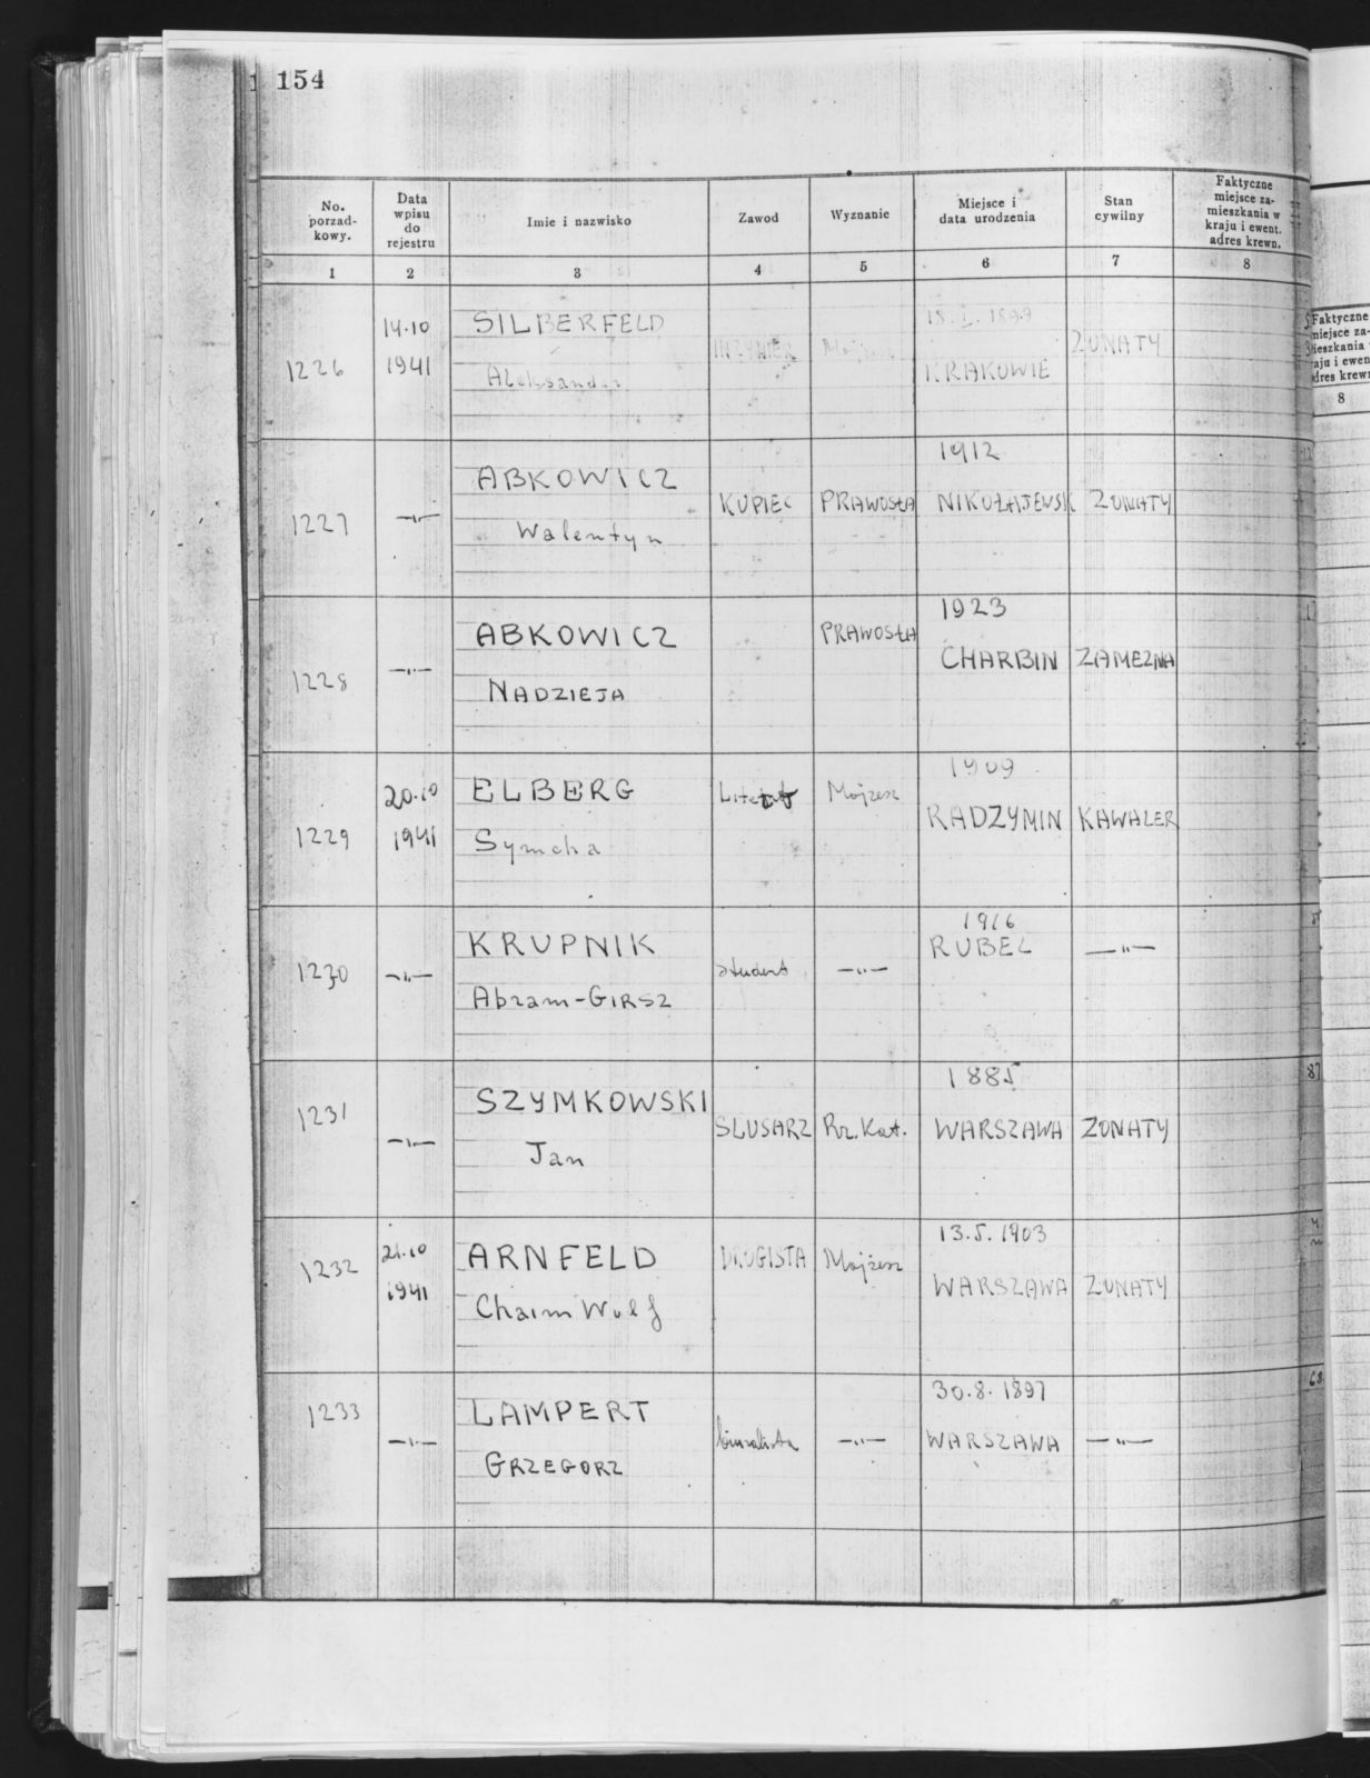 154
No. porzad- kowy.
Data wpisu do rejestru
Imie i nazwisko
Zawod
Wyznanie
Miejsce i data urodzenia
Stan cywilny
Faktyczne miejsce za- mieszkania w kraju i ewent. adres krewn.
1 2 3 4 5 6 7 8
1226 14.10 1941 SILBERFELD INŻYNIER 1899 ZONATY
Aleksander KRAKOWIE
1227 —"— ABKOWICZ KUPIEC PRAWOSŁA 1912 NIKOŁAJEWSK ZONATY
Walentyn
1228 —"— ABKOWICZ PRAWOSŁA 1923 CHARBIN ZAMEZNA
NADZIEJA
1229 20.10 1941 ELBERG Literat Mojżesz 1909 RADZYMIN KAWALER
Symcha
1230 —"— KRUPNIK student —"— 1916 RUBEL —"—
Abram-GIRSZ
1231 —"— SZYMKOWSKI SLUSARZ Rz. Kat. 1885 WARSZAWA ZONATY
Jan
1232 21.10 1941 ARNFELD DROGISTA Mojżesz 13.5.1903 WARSZAWA ZONATY
Chaim Wulf
1233 —"— LAMPERT —"— 30.8.1897 WARSZAWA —"—
GRZEGORZ
Faktyczne
miejsce za-
mieszkania
kraju i ewen
adres krewn
8